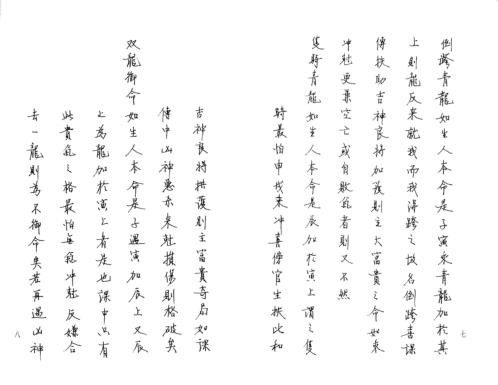 倒跨青龍如生人本命是子寅來青龍加於其
上則龍反來就我而我得跨之故名倒跨喜課
傳扶助吉神良將加護則主大富貴之命如來
冲尅更兼空亡或自敗氣者則又不然
隻騎青龍如生人本命是辰加於寅上謂之隻
騎最怕申戌來冲喜傍官生扶比和
七
吉神良將拱護則主富貴奇局如課
傳中凶神惡亦來尅損傷則格破矣
双龍御命如生人本命是子遇寅加辰上又辰
上為龍加於寅上者是也課中只有
此貴氣之格最怕無氣冲尅反嫌合
去一龍則為不御命矣若再遇凶神
八